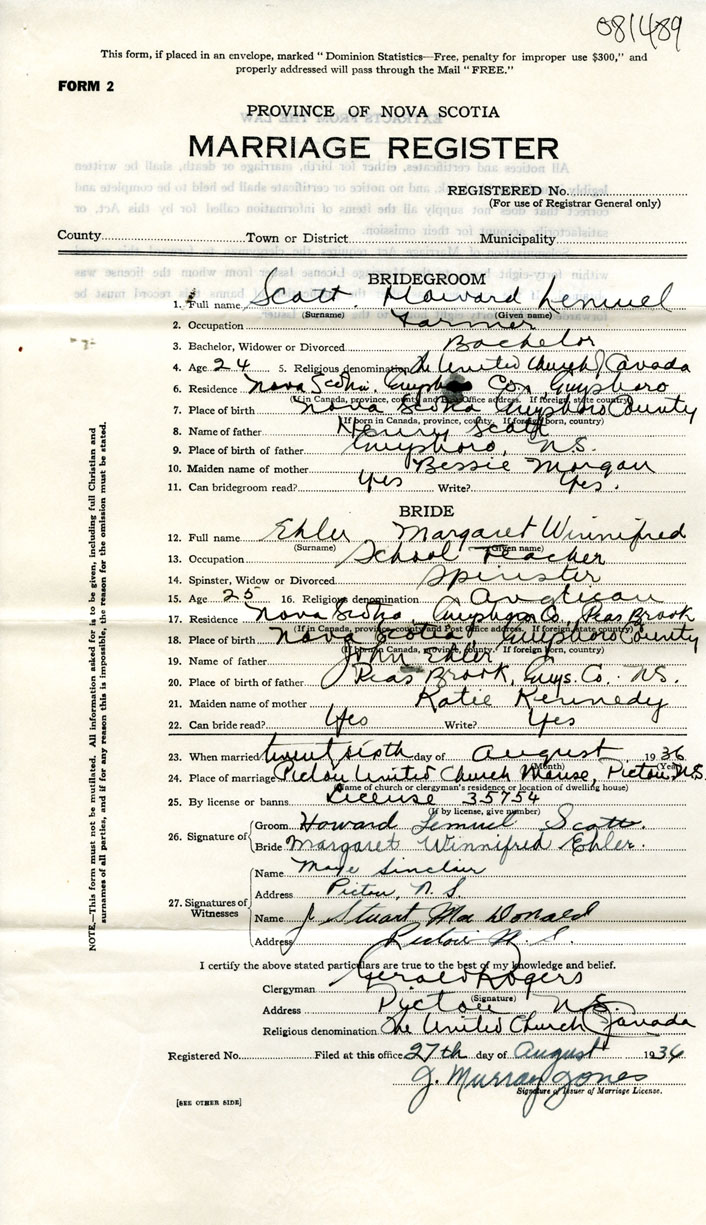 081489
This form, if placed in an envelope, marked "Dominion Statistics—Free, penalty for improper use $300," and
properly addressed will pass through the Mail "FREE."
FORM 2
PROVINCE OF NOVA SCOTIA
MARRIAGE REGISTER
REGISTERED No.
(For use of Registrar General only)
County Town or District Municipality
BRIDEGROOM
1. Full name Scott Howard Lemuel
(Surname) (Given name)
2. Occupation Farmer
3. Bachelor, Widower or Divorced Bachelor
4. Age 24 5. Religious denomination The United Church of Canada
6. Residence Nova Scotia. Guysboro Co., Guysboro
(If in Canada, province, county and Post Office address. If foreign, state country)
7. Place of birth Nova Scotia Guysboro County
(If born in Canada, province, county. If foreign born, country)
8. Name of father Henry Scott
9. Place of birth of father Guysboro, N.S.
10. Maiden name of mother Bessie Morgan
11. Can bridegroom read? Yes Write? Yes.
BRIDE
12. Full name Ehler Margaret Winnifred
(Surname) (Given name)
13. Occupation School Teacher
14. Spinster, Widow or Divorced Spinster
15. Age 25 16. Religious denomination Anglican
17. Residence Nova Scotia, Guysboro Co., Peas Brook
(If in Canada, province, county and Post Office address. If foreign state country)
18. Place of birth Nova Scotia, Guysboro County
(If born in Canada, province, county. If foreign born, country)
19. Name of father John Ehler
20. Place of birth of father Peas Brook, Guys. Co. N.S.
21. Maiden name of mother Katie Kennedy
22. Can bride read? Yes Write? Yes
23. When married twenty sixth day of August 1936
(Month) (Year)
24. Place of marriage Pictou United Church Manse, Pictou N.S.
(Name of church or clergyman's residence or location of dwelling house)
25. By license or banns License 35754
(If by license, give number)
26. Signature of Groom Howard Lemuel Scott.
Bride Margaret Winnifred Ehler.
27. Signatures of Witnesses
Name Maye Sinclair
Address Pictou, N.S.
Name J. Stuart MacDonald
Address Pictou N.S.
I certify the above stated particulars are true to the best of my knowledge and belief.
Clergyman Gerald Rogers
(Signature)
Address Pictou N.S.
Religious denomination The United Church Canada
Registered No. Filed at this office 27th day of August 1936
J. Murray Jones
Signature of Issuer of Marriage License.
[SEE OTHER SIDE]
NOTE.—This form must not be mutilated. All information asked for is to be given, including full Christian and
surnames of all parties, and if for any reason this is impossible, the reason for the omission must be stated.